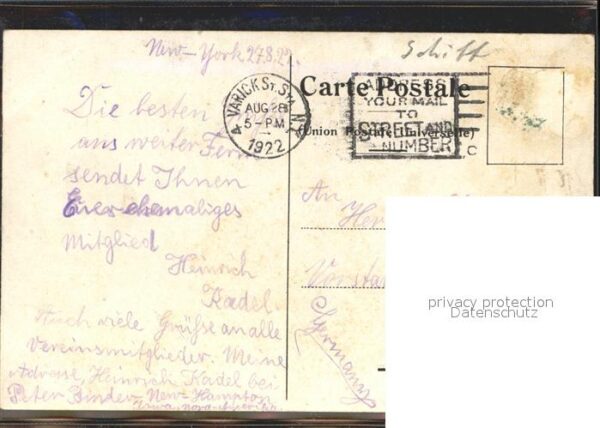 New-York 27.8.22.
Schiff
Carte Postale
(Union Postale Universelle)
VARICK ST. STA. N.Y.
AUG 28
5-PM
1922
ADDRESS
YOUR MAIL
TO
STREET AND
NUMBER
Die besten
aus weiter Ferne
sendet Ihnen
Euer ehemaliges
Mitglied
Heinrich
Kadel.
Auch viele Grüsse an alle
Vereinsmitglieder. Meine
Adresse, Heinrich Kadel bei
Peter Binder, New-Hampton
Iowa, nord-Amerika
An
Her
Vorstan
Germany
privacy protection
Datenschutz